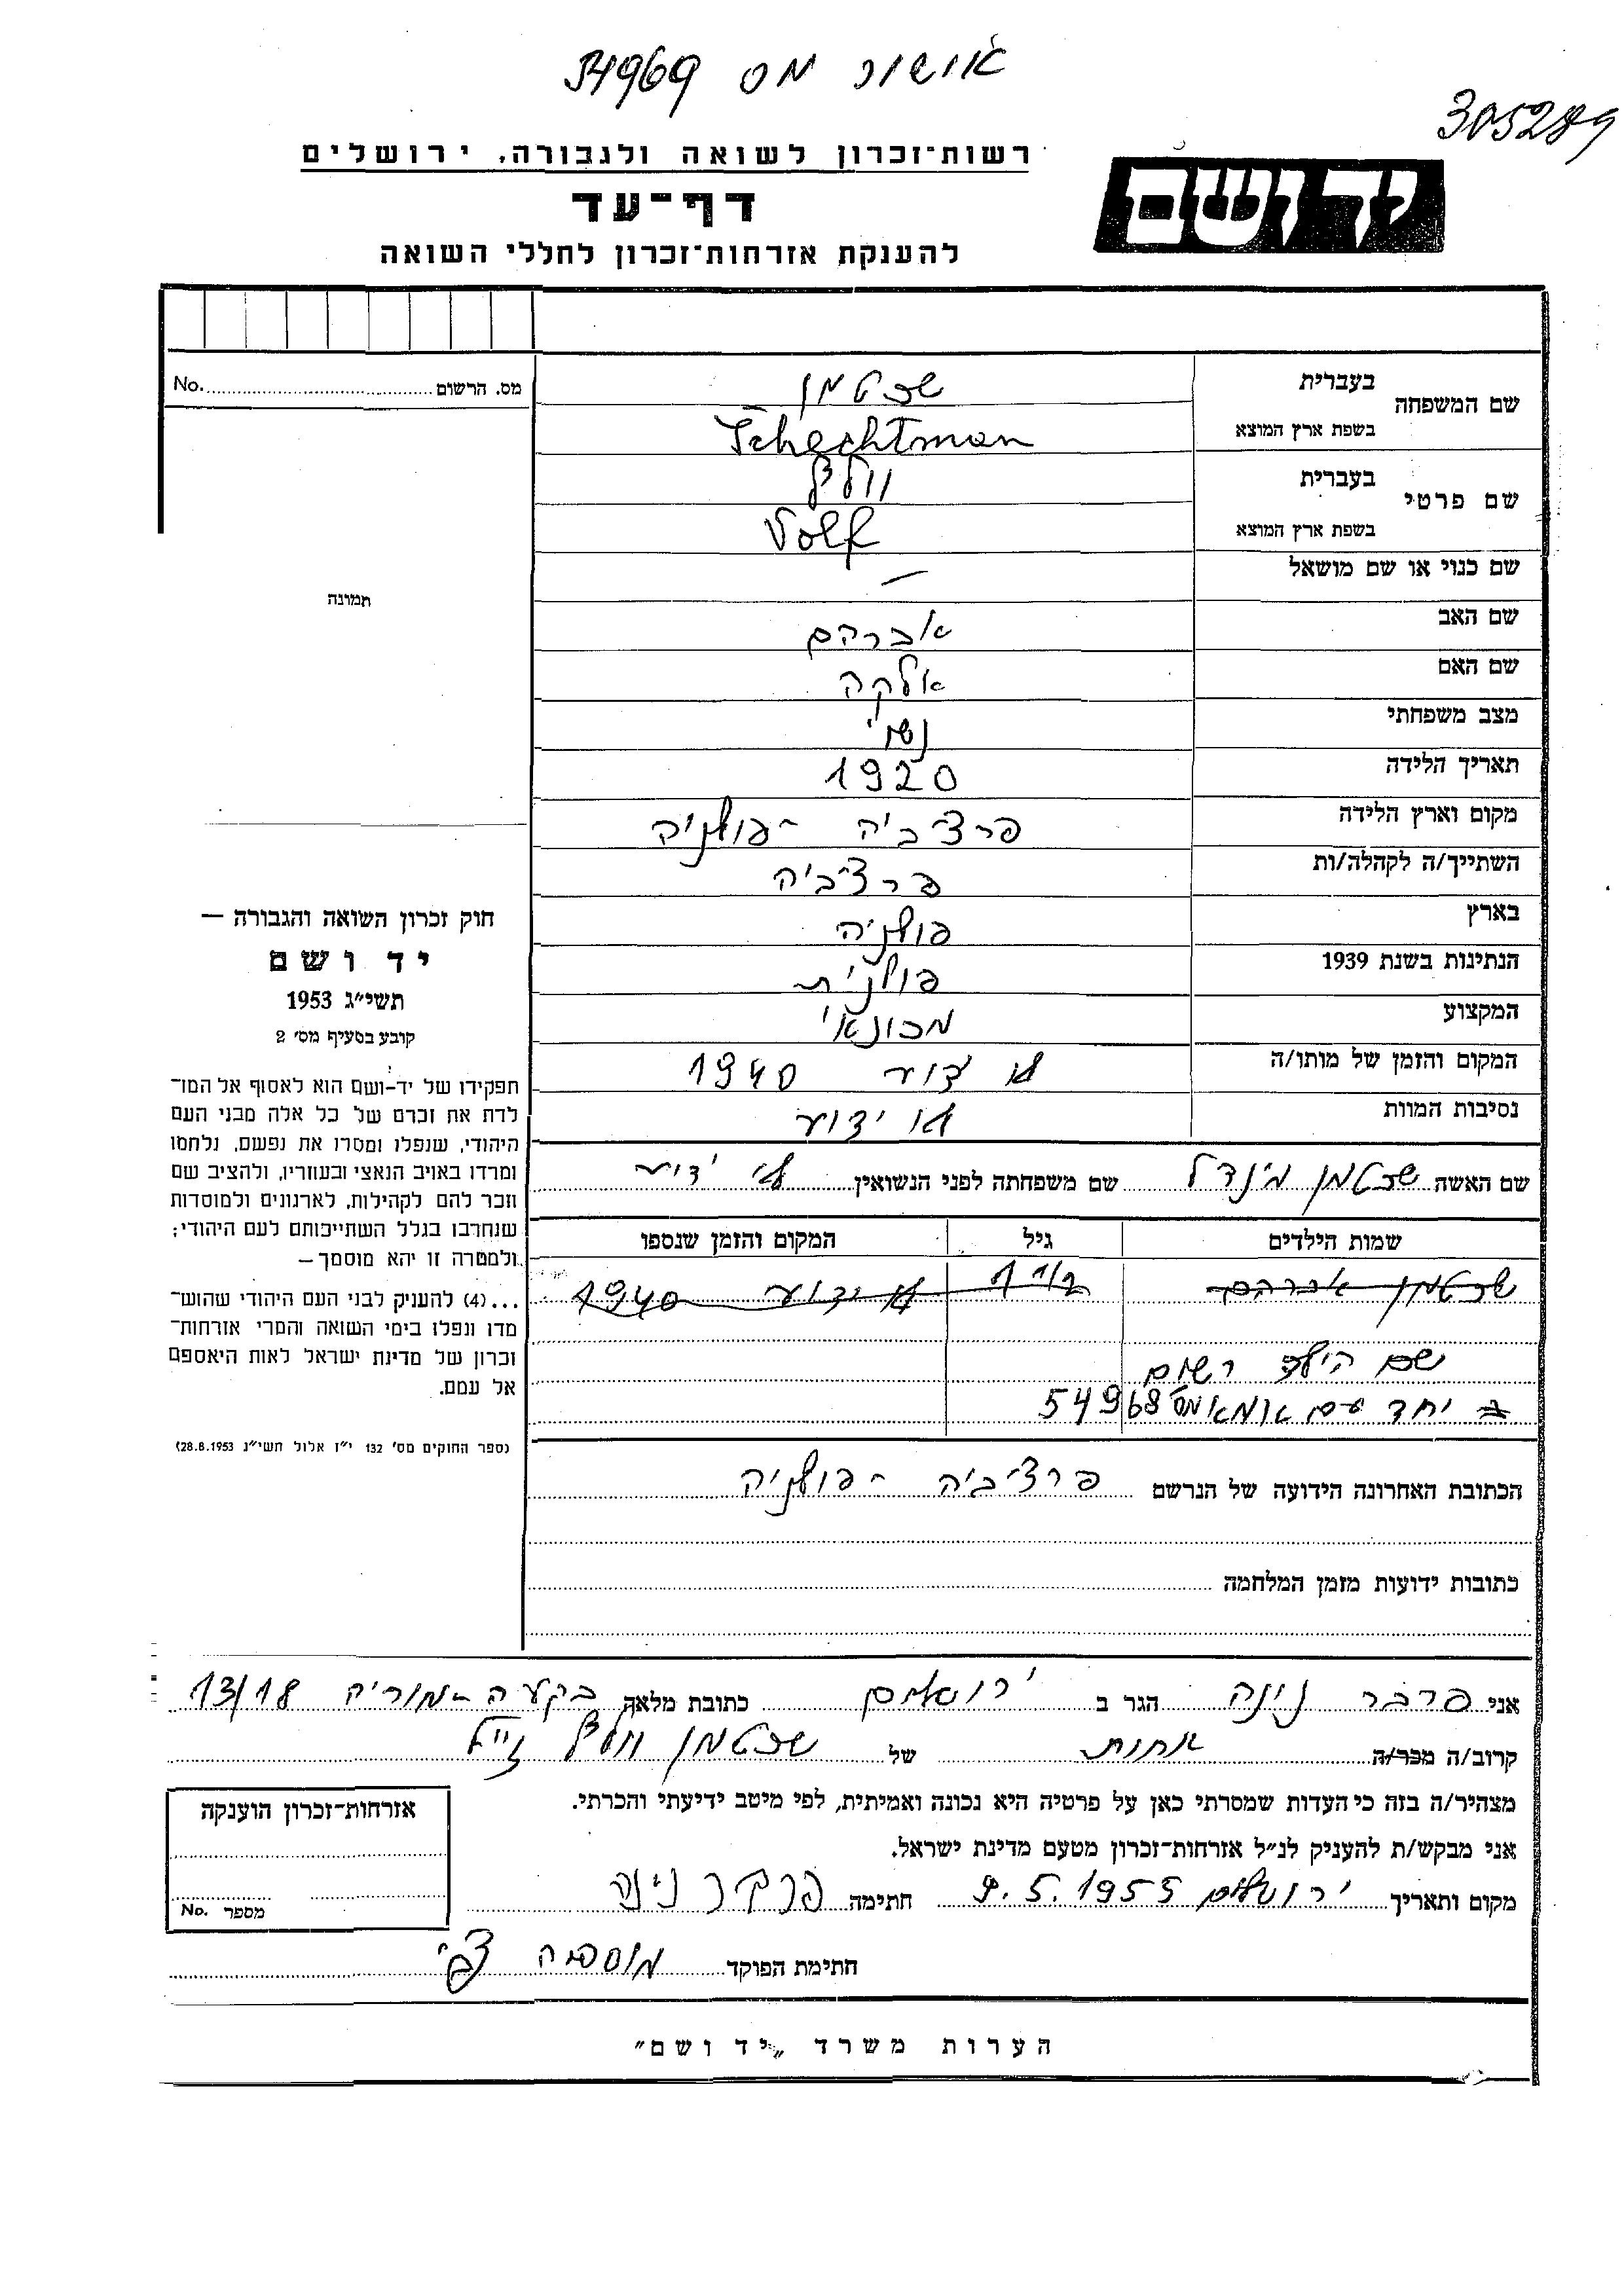 אושור מס 54969
305289
רשות־זכרון לשואה ולגבורה, ירושלים
יד ושם
דף־עד
להענקת אזרחות־זכרון לחללי השואה
מס. הרשום No.
שם המשפחה בעברית שכטמן
בשפת ארץ המוצא Schechtman
שם פרטי בעברית וולף
בשפת ארץ המוצא Volf
שם כנוי או שם מושאל –
שם האב אברהם
שם האם אלקה
מצב משפחתי נשוי
תאריך הלידה 1920
מקום וארץ הלידה פרצ'ביה - פולניה
השתייך/ה לקהלה/ות פרצ'ביה
בארץ פולניה
הנתינות בשנת 1939 פולנית
המקצוע מכונאי
המקום והזמן של מותו/ה 1940
נסיבות המוות לא ידוע
שם האשה שכטמן מינדל שם משפחתה לפני הנשואין לא ידוע
שמות הילדים גיל המקום והזמן שנספו
שכטמן אברהם 1 1/2 לא ידוע 1940
שם הילד רשום
יחד עם אמא מס' 54968
הכתובת האחרונה הידועה של הנרשם פרצ'ביה - פולניה
כתובות ידועות מזמן המלחמה
תמונה
חוק זכרון השואה והגבורה —
יד ושם
תשי״ג 1953
קובע בסעיף מס׳ 2
תפקידו של יד-ושם הוא לאסוף אל המו־
לדת את זכרם של כל אלה מבני העם
היהודי, שנפלו ומסרו את נפשם, נלחמו
ומרדו באויב הנאצי ובעוזריו, ולהציב שם
וזכר להם לקהילות, לארגונים ולמוסדות
שנחרבו בגלל השתייכותם לעם היהודי;
ולמטרה זו יהא מוסמך —
...(4) להעניק לבני העם היהודי שהוש־
מדו ונפלו בימי השואה והמרי אזרחות־
זכרון של מדינת ישראל לאות היאספם
אל עמם.
(ספר החוקים מס׳ 132 י״ז אלול תשי״ג 28.8.1953)
אני פרבר נינה הגר ב ירושלים כתובת מלאה בקעה - מוריה 13/18
קרוב/ה מכר/ה אחות של שכטמן וולף ז"ל
מצהיר/ה בזה כי העדות שמסרתי כאן על פרטיה היא נכונה ואמיתית, לפי מיטב ידיעתי והכרתי.
אני מבקש/ת להעניק לנ״ל אזרחות־זכרון מטעם מדינת ישראל.
מקום ותאריך ירושלים 9.5.1955 חתימה פרבר נינה
חתימת הפוקד
אזרחות־זכרון הוענקה
מספר No.
הערות משרד „יד ושם״